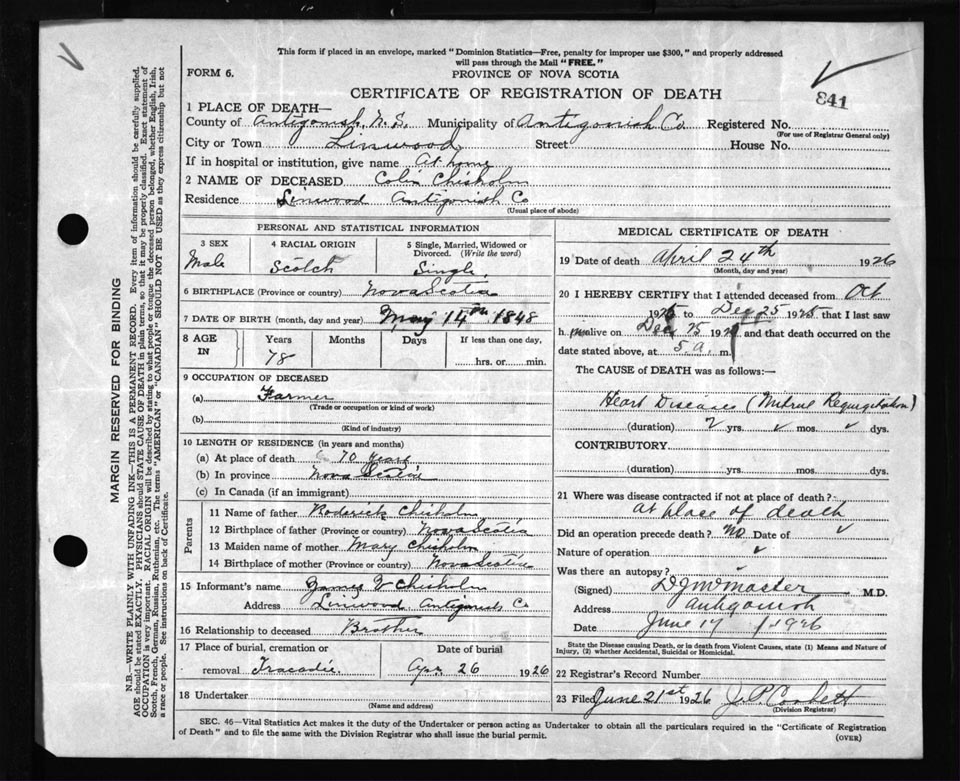 This form if placed in an envelope, marked "Dominion Statistics—Free, penalty for improper use $300," and properly addressed
will pass through the Mail "FREE."
FORM 6.
PROVINCE OF NOVA SCOTIA
CERTIFICATE OF REGISTRATION OF DEATH
841
1 PLACE OF DEATH—
County of Antigonish, N.S. Municipality of Antigonish Co Registered No.
(For use of Registrar General only)
City or Town Linwood Street House No.
If in hospital or institution, give name At home
2 NAME OF DECEASED Colin Chisholm
Residence Linwood Antigonish Co
(Usual place of abode)
PERSONAL AND STATISTICAL INFORMATION
3 SEX
Male
4 RACIAL ORIGIN
Scotch
5 Single, Married, Widowed or
Divorced. (Write the word)
Single
6 BIRTHPLACE (Province or country) Nova Scotia
7 DATE OF BIRTH (month, day and year) May 14th 1848
8 AGE
IN
Years
78
Months
Days
If less than one day,
hrs. or min.
9 OCCUPATION OF DECEASED
(a) Farmer
(Trade or occupation or kind of work)
(b)
(Kind of industry)
10 LENGTH OF RESIDENCE (in years and months)
(a) At place of death 70 years
(b) In province Nova Scotia
(c) In Canada (if an immigrant)
Parents
11 Name of father Roderick Chisholm
12 Birthplace of father (Province or country) Nova Scotia
13 Maiden name of mother Mary Chisholm
14 Birthplace of mother (Province or country) Nova Scotia
15 Informant's name James Chisholm
Address Linwood, Antigonish Co
16 Relationship to deceased Brother
17 Place of burial, cremation or
removal Tracadie
Date of burial
Apr 26 1926
18 Undertaker
(Name and address)
MEDICAL CERTIFICATE OF DEATH
19 Date of death April 24th 1926
(Month, day and year)
20 I HEREBY CERTIFY that I attended deceased from Oct
1925 to Dec 25 1925 that I last saw
h im alive on Dec 25 192 and that death occurred on the
date stated above, at 5 a. m.
The CAUSE of DEATH was as follows:—
Heart Disease (Mitral Regurgitation)
(duration) 2 yrs. mos. dys.
CONTRIBUTORY.
(duration) yrs. mos. dys.
21 Where was disease contracted if not at place of death?
at place of death
Did an operation precede death? no Date of
Nature of operation
Was there an autopsy?
(Signed) M.D.
Address Antigonish
Date June 17 1926
State the Disease causing Death, or in death from Violent Causes, state (1) Means and Nature of
Injury, (2) whether Accidental, Suicidal or Homicidal.
22 Registrar's Record Number
23 Filed June 21st 1926 J. P. Corbett
(Division Registrar)
SEC. 46—Vital Statistics Act makes it the duty of the Undertaker or person acting as Undertaker to obtain all the particulars required in the "Certificate of Registration
of Death" and to file the same with the Division Registrar who shall issue the burial permit.
(OVER)
MARGIN RESERVED FOR BINDING
N.B.—WRITE PLAINLY WITH UNFADING INK—THIS IS A PERMANENT RECORD. Every item of information should be carefully supplied.
AGE should be stated EXACTLY. PHYSICIANS should STATE CAUSE OF DEATH in plain terms, so that it may be properly classified. Exact statement of
OCCUPATION is very important. RACIAL ORIGIN will be described by stating to what people or tongue the deceased person belonged, whether English, Irish,
Scotch, French, German, Russian, Ruthenian, etc. The terms "AMERICAN" or "CANADIAN" SHOULD NOT BE USED as they express citizenship but not
a race or people. See instructions on back of Certificate.